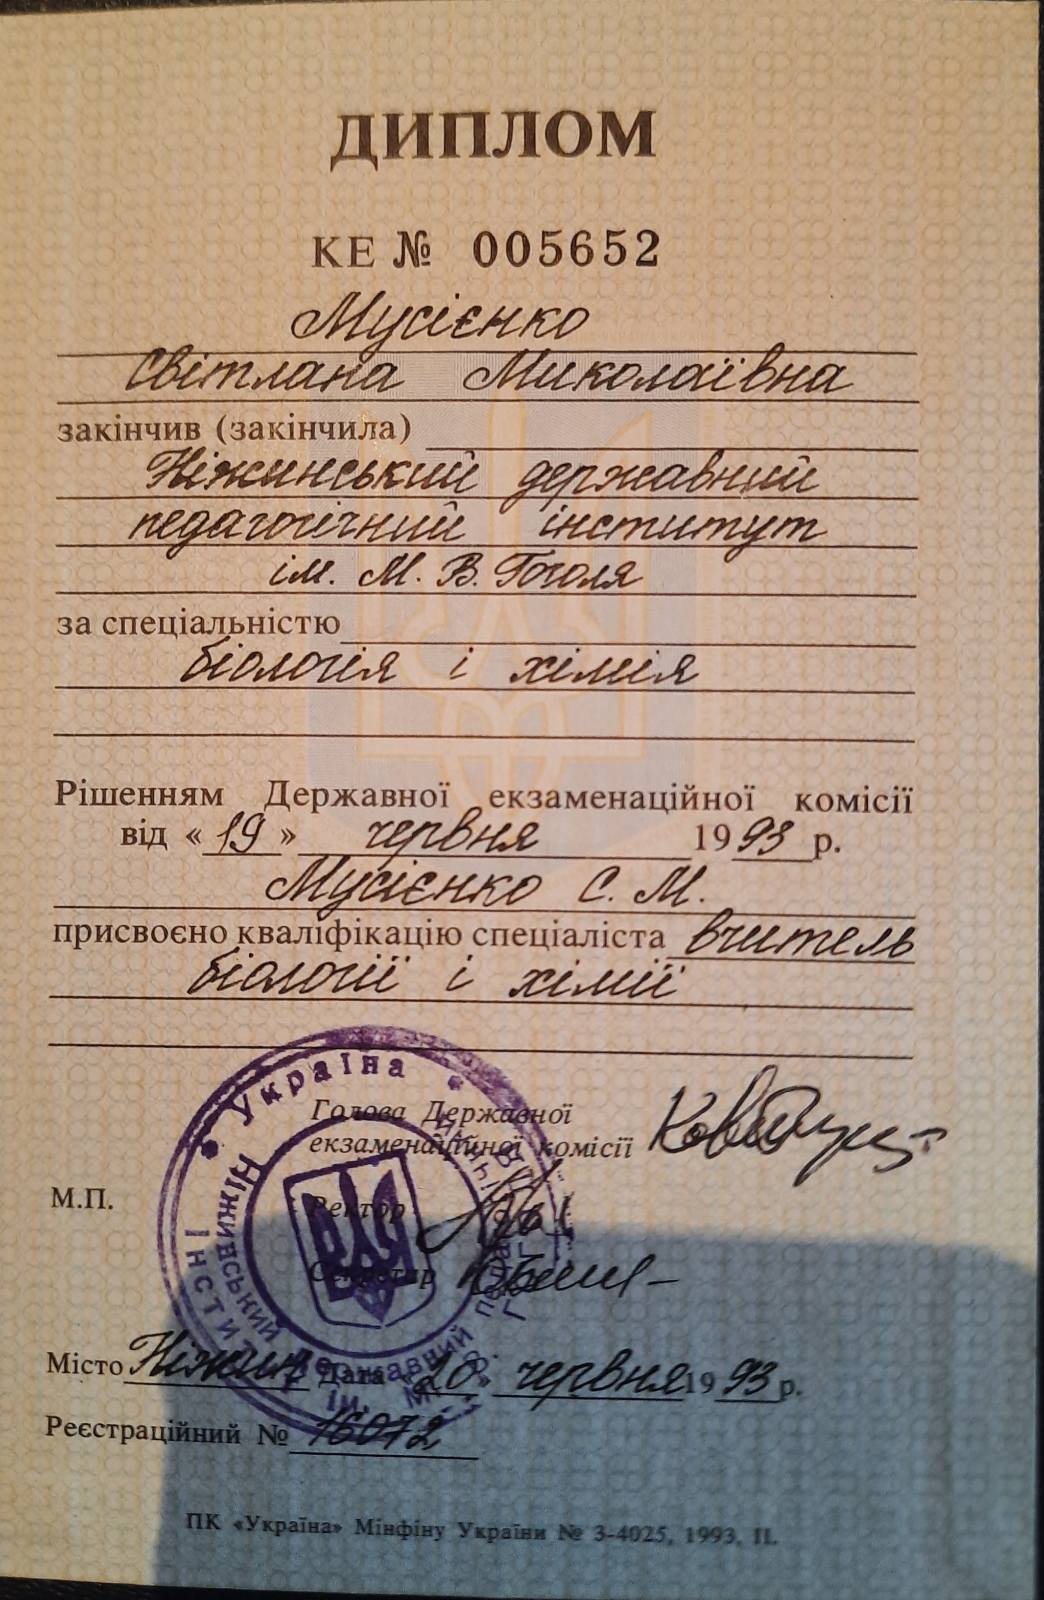 ДИПЛОМ
КЕ № 005652
Мусієнко
Світлана Миколаївна
закінчив (закінчила)
Ніжинський державний
педагогічний інститут
ім. М. В. Гоголя
за спеціальністю
біологія і хімія
Рішенням Державної екзаменаційної комісії
від « 19 » червня 1993 р.
Мусієнко С. М.
присвоєно кваліфікацію спеціаліста вчитель
біології і хімії
Україна
Голова Державної
екзаменаційної комісії
М.П.
Ректор
Секретар
Ніжинський державний
Інститут
ім. М.В.
Місто Ніжин Дата 20 червня 1993 р.
Реєстраційний № 16072
ПК «Україна» Мінфіну України № 3-4025, 1993, II.